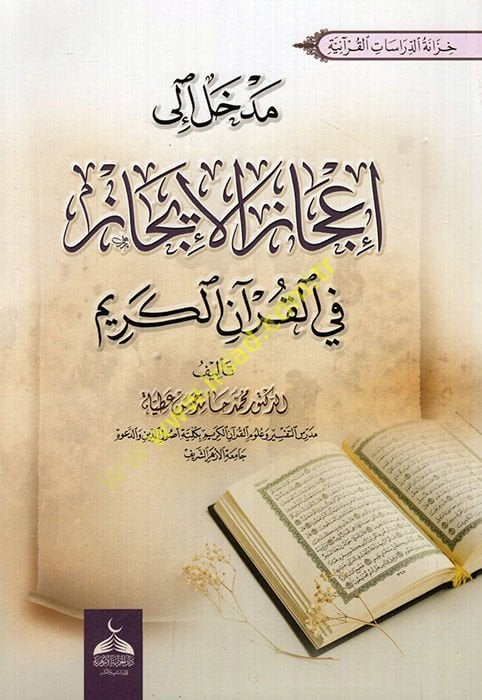 خِزَانَةُ الدِّرَاسَاتِ الْقُرْآنِيَّةِ
مَدْخَلٌ إِلَى
إِعْجَازِ الْإِيجَازِ
فِي الْقُرْآنِ الْكَرِيمِ
تَأْلِيفُ
الدكتور محمد حامد عطية
مدرس التفسير وعلوم القرآن الكريم بكلية أصول الدين والدعوة
جامعة الأزهر الشريف